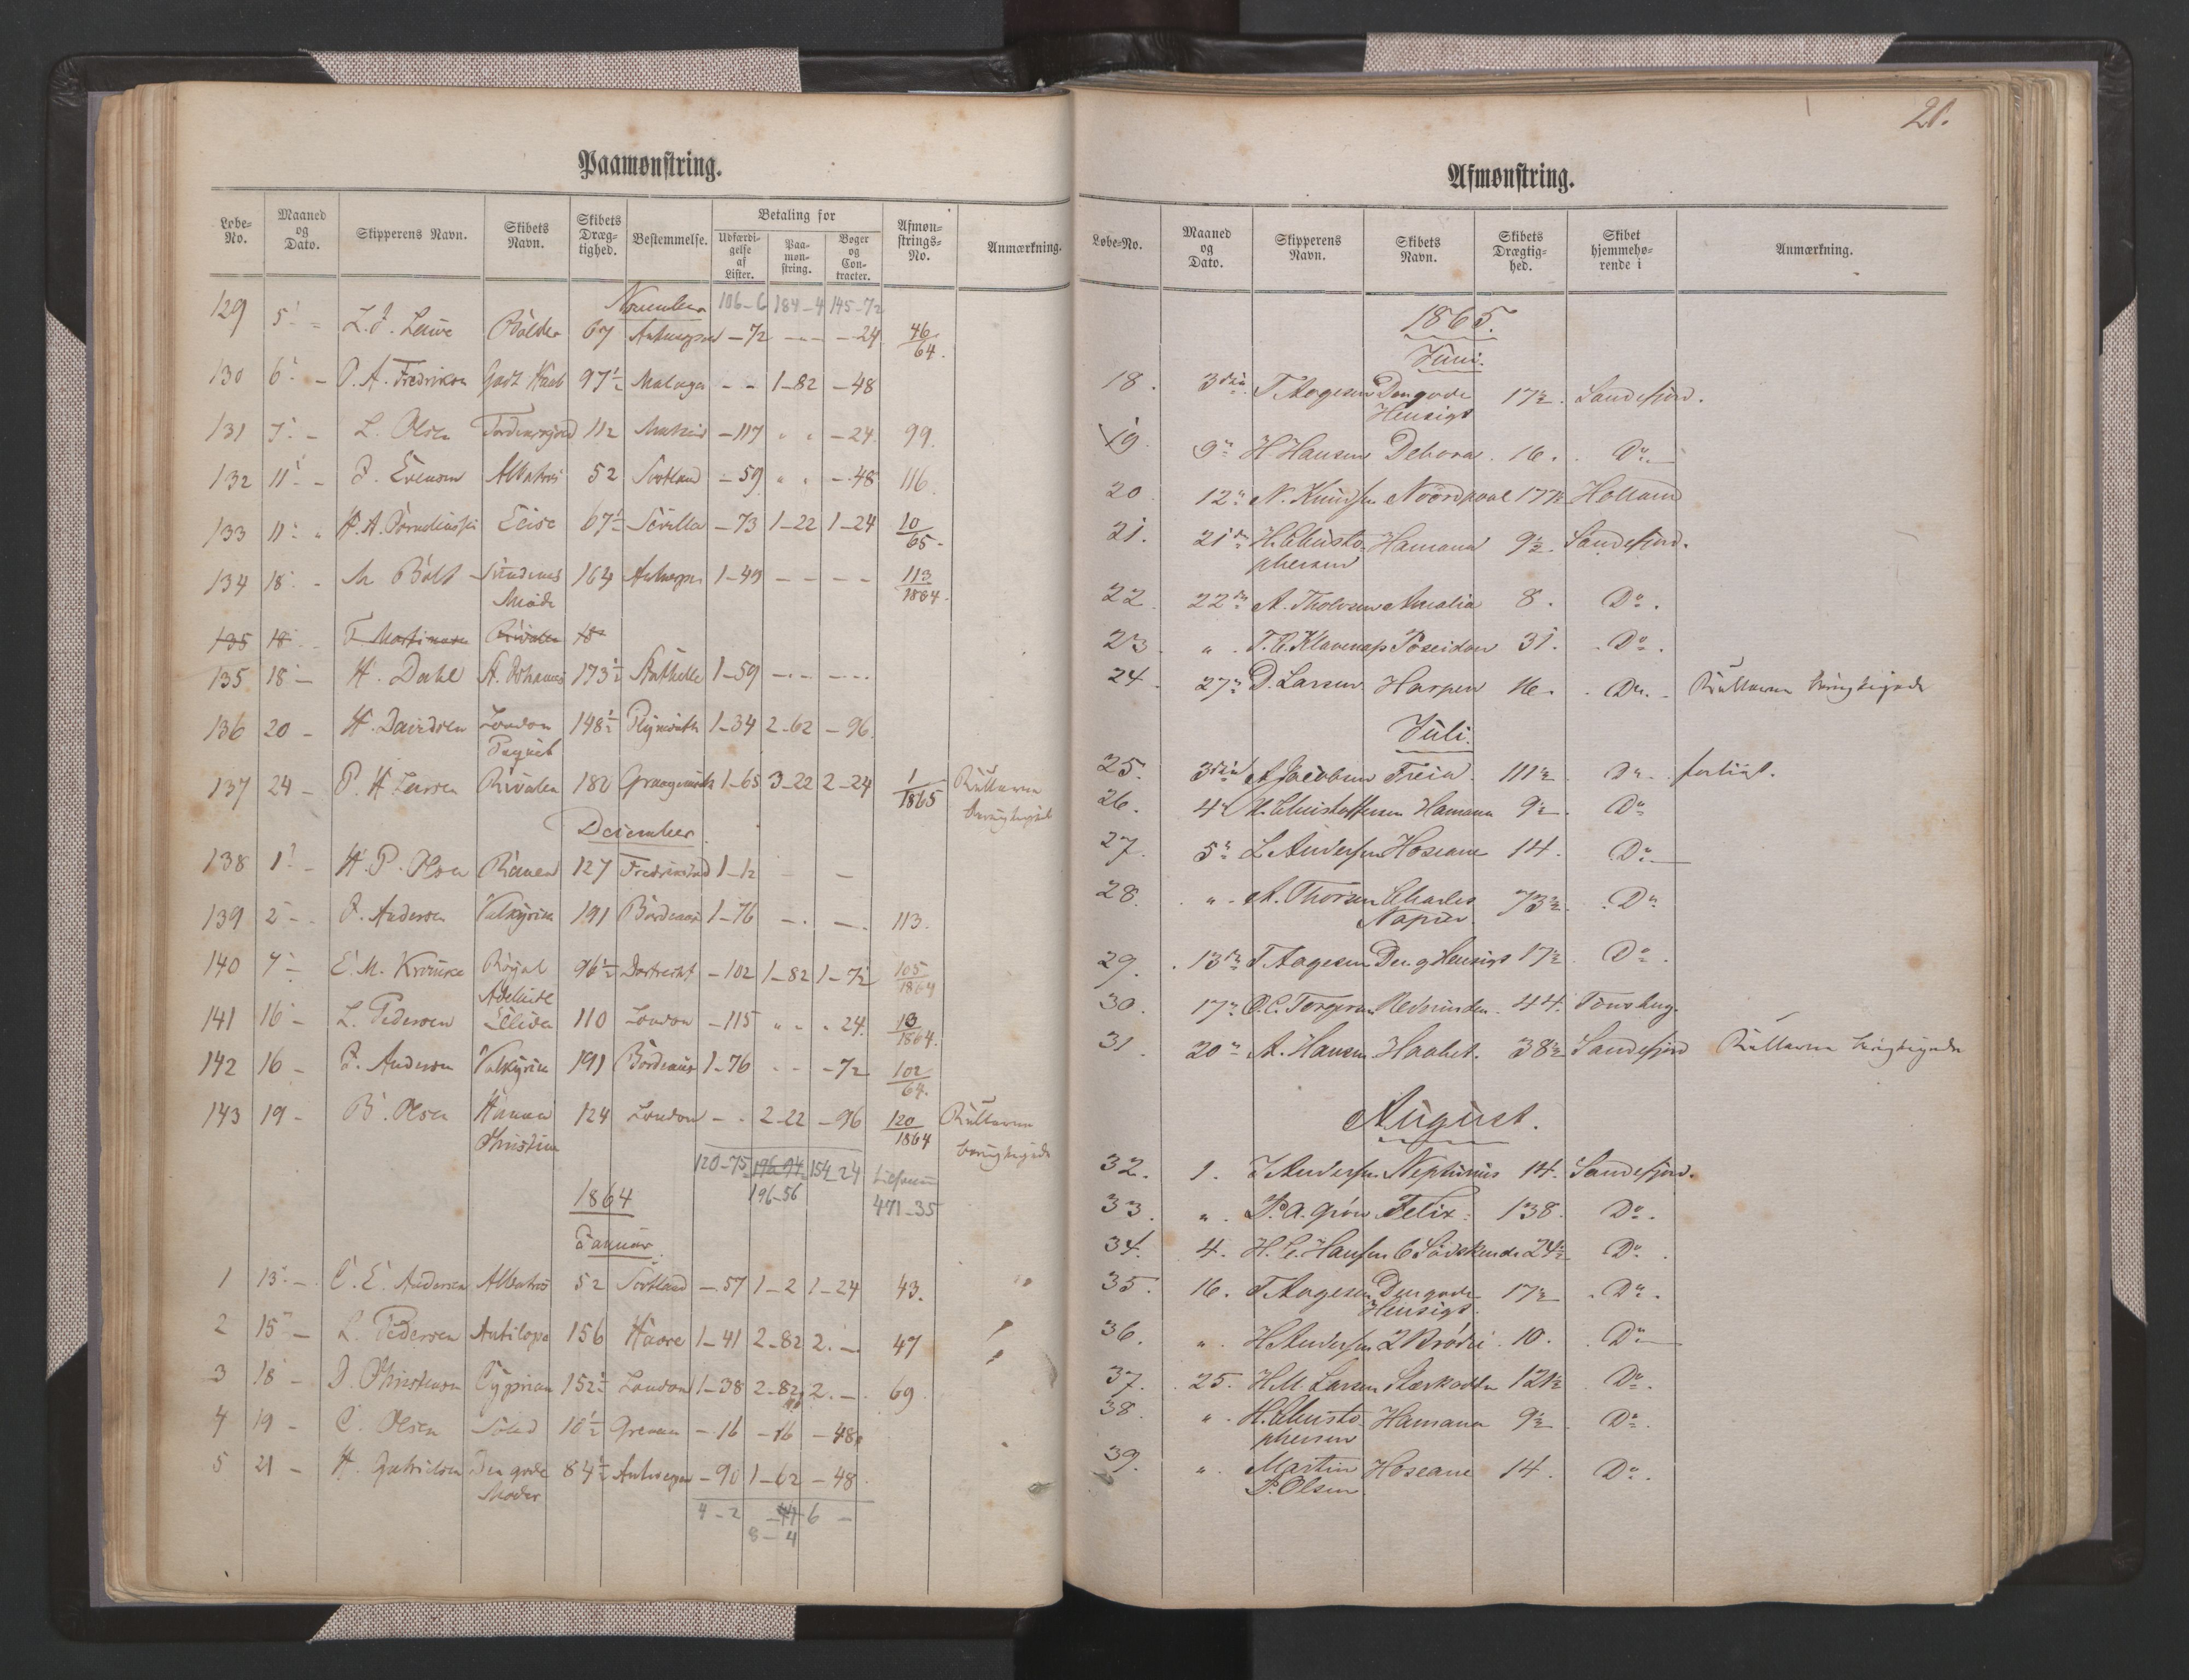 Paamønstring.
Løbe-No. | Maaned og Dato. | Skipperens Navn. | Skibets Navn. | Skibets Dræg-tighed. | Bestemmelse. | Betaling for | Udfærdi-gelse af Lister. | Paa-møn-string. | Bøger og Con-tracter. | Afmøn-strings-No. | Anmærkning.
November 106-6 184-4 145-72
129 5 L. J. Balder 67 Antwerpen -72 - - -24 46/64.
130 6 O. A. Fredriksen Godt Haab 97½ Malaga - - 1-82 -48
131 7 L. Olsen 112 -117 " " -24. 99.
132 11 J. Evensen Albatros 52 Skotland -59 " " -48 116.
133 11 H. A. 67½ Sevilla -73 1-22 1-24 10/65.
134 18 Bolt Sindenes 164 Antwerpen 1-49 - - - - 113/1864.
Minde
135 18 F. Martinsen Rivalen 18
135 18 H. Dahl A. Johannes 173½ Stathelle 1-59 - - - -
136 20 H. Davidsen London 148½ Plymouth 1-34 2-62 -96.
Paquet
137 24 P. H. Larsen Rivalen 182 1-65 3-22 2-24 1/1865 Rullerne
berigtiget
December.
138 1 H. P. Olsen 127 Fredrikstad 1-12 - -
139 2 J. Andersen Valkyrien 191 Bordeaux 1-76 - - 113.
140 7 E. M. Royal 96½ Dortrecht -102 1-82 1-72 105/1864
Adelaide
141 16 L. Pedersen Elida 110 London -115 " " " 24. 13/1864.
142 16 J. Andersen Valkyrien 191 Bordeaux 1-76 - - -72 102/64.
143 19 B. Olsen Hanna 124 London - - 2-22 -96 120/1864 Rullerne
Christine berigtigede
120-75 196-94 154-24
196-56 471-35
1864
Januar.
1 13 C. E. Andersen Albatros 52 Skotland -57 1-2 1-24 43.
2 15 L. Pedersen Antilope 156 Havre 1-41 2-82 2.- 47
3 18 J. Christensen Cyprian 152½ London 1-38 2-82 2.- 69.
4 19 C. Olsen 10½ -16 -16 -48
5 21 H. Gabrielsen Den gode 84½ Antwerpen -90 1-62 -48.
Moder
4-2 6 -
8-4
21.
Afmønstring.
Løbe-No. | Maaned og Dato. | Skipperens Navn. | Skibets Navn. | Skibets Drægtig-hed. | Skibet hjemmehø-rende i | Anmærkning.
1865.
Juni.
18. 3die T Aagesen Den gode 17½. Sandefjord.
Hensigt
19. 9 H Hansen Debora. 16. Do.
20 12 N. Knudsen Noordpool 177½ Holland
21. 21de H. Christo- Hamana 9½. Sandefjord.
phersen
22. 22de A. Tholvsen Amalia 8. Do.
23. " T. C. Klavenes Poseidon 31. Do.
24. 27 D. Larsen Harpen 16. Do. Rullerne berigtigede
Juli.
25. 3die A Jacobsen Freia 111½ Do. forlist.
26. 4 H. Christoffersen Hamana 9½. Do
27. 5 L. Andersen Hoseane 14. Do.
28. " A. Thorsen Charles 73½. Do
Napier.
29. 13de T. Aagesen Den g Hensigt 17½ Do.
30. 17 O. C. Torgersen 44. Tønsberg.
31. 20 A. Hansen Haabet. 38½ Sandefjord Rullerne berigtigede
August.
32. 1. J Andersen Neptunus 14. Sandefjord.
33. " P. A. Grøn Felix. 138. Do.
34. 4. H. C. Hansen 6 Sødskende 24½ Do.
35. 16. T. Aagesen Den gode 17½ Do.
Hensigt.
36. " H Andersen 2 Brødre 10. Do.
37. 25. H. M. Larsen Stærkodder 121½ Do.
38. " H. Christo- Hamana 9½ Do.
phersen
39. " Martin Hoseane 14. Do.
P. Olsen